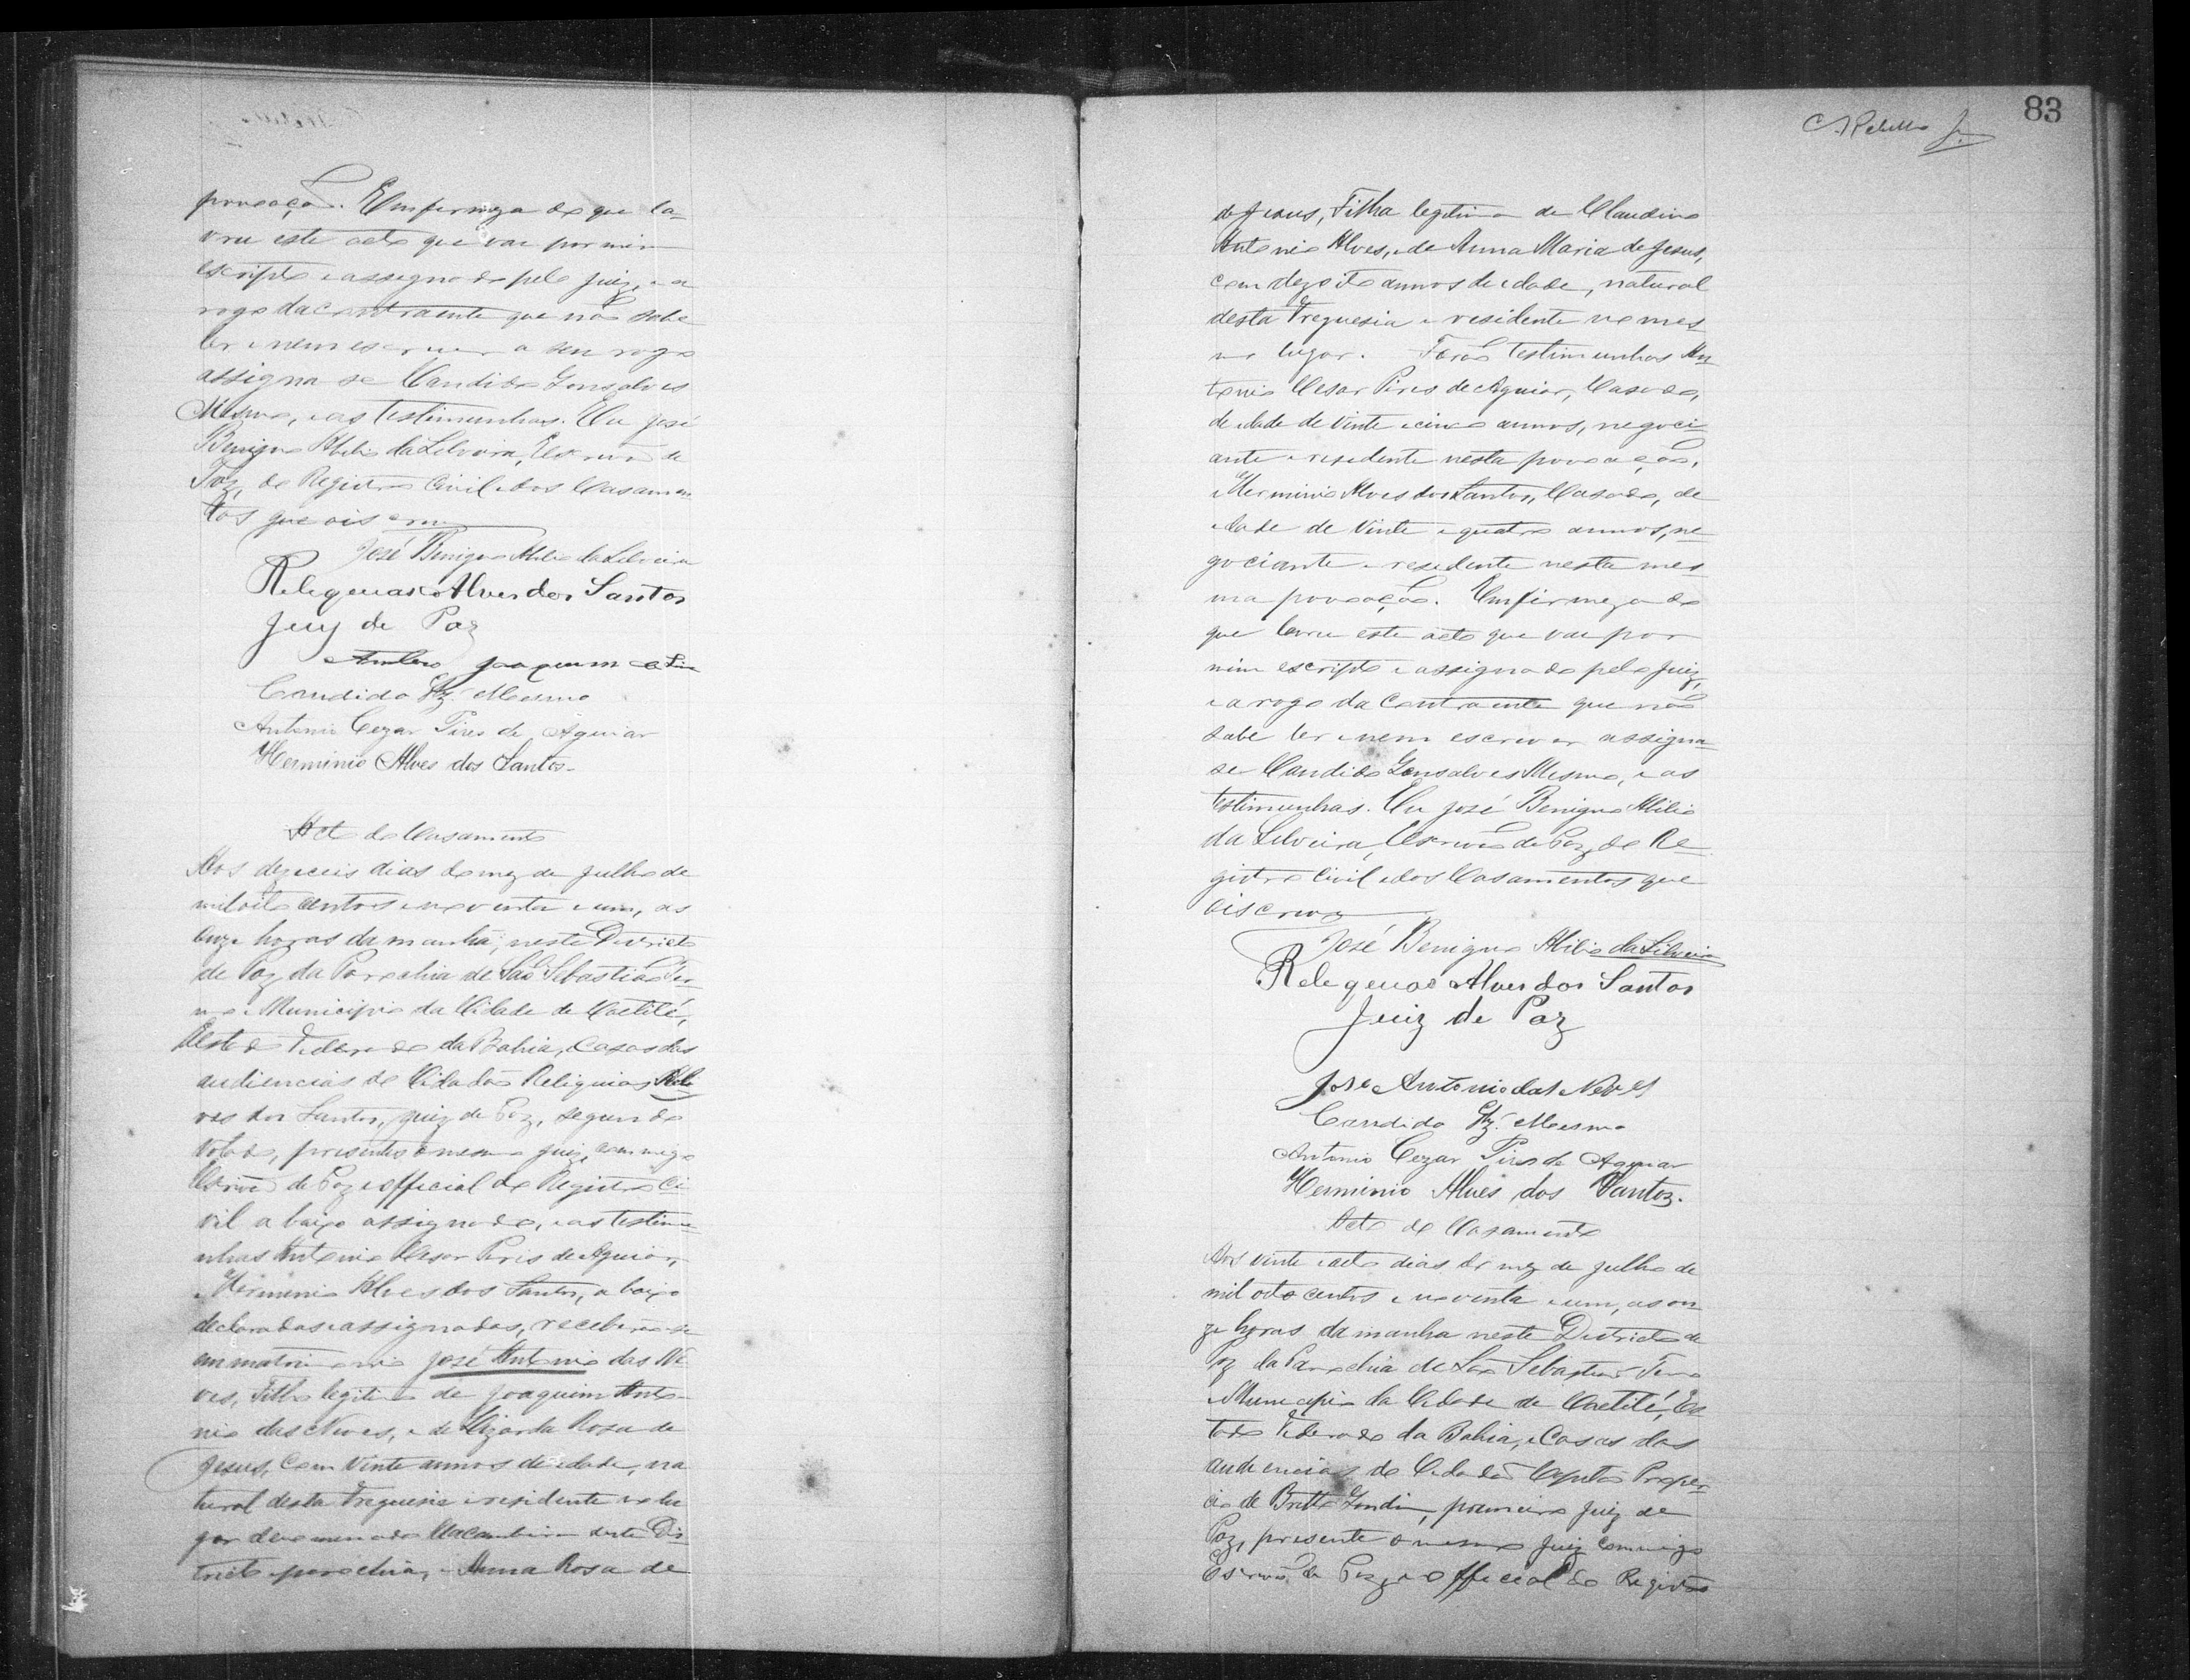 povoação. Em firmeza do que la-
vrei este acto que vae por mim
escripto e assignado pelo Juiz, e a
rogo da contraente que não sabe
ler e nem escrever a seu rogo
assigna se Candido Gonsalves
Mesmo, e as testimunhas. Eu José
Benigno Abilio da Silveira, Escrivão de
Paz, do Registro Civil e dos Casamen
tos que o iscrevy
José Benigno Abilio da Silveira
Reliquias Alves dos Santos
Juiz de Paz
Joaquim
Candido Glz. Mesmo
Antonio Cezar Pires de Aguiar
Herminio Alves dos Santos-
Acto de Casamento
Aos dezeceis dias do mez de Julho de
mil oito centos e noventa e um, as
onze horas da manhã, neste Districto
de Paz da Parochia de São Sebastião Ter-
mo e Municipio da Cidade de Caetité,
Estado Federado da Bahia, e Casas das
audiencias do Cidadão Reliquias Al
ves dos Santos, Juiz de Paz, segundo
votado, presentes o mesmo Juiz, commigo
Escrivão de Paz e official do Registro Ci
vil a baixo assignado, e as testimu
nhas Antonio Cesar Pires de Aguiar,
e Herminio Alves dos Santos, a baixo
declaradas e assignadas, receberão-se
em matrimonio José Antonio das Ne
ves, Filho legitimo de Joaquim Anto-
nio das Neves, e de Lizarda Rosa de
Jesus, com vinte annos de idade, na
tural desta Freguesia e residente no lu
gar denominado Macambira deste Dis
tricto e parochia, e Anna Rosa de
83
C Rebello Jr.
de Jesus, Filha legitima de Claudino
Antonio Alves, e de Anna Maria de Jesus,
com dezoito annos de idade, natural
desta Freguesia e residente no mes
mo lugar. Forão testimunhas An
tonio Cesar Pires de Aguiar, Casado,
de idade de vinte e cinco annos, negoci
ante e residente nesta povoação,
e Herminio Alves dos Santos, Casado, de
idade de vinte e quatro annos, ne
gociante e residente nesta mes
ma povoação. Em firmeza do
que lavrei este acto que vae por
mim escripto e assignado pelo Juiz,
e a rogo da contraente que não
sabe ler e nem escrever assigna
se Candido Gonsalves Mesmo, e as
testimunhas. Eu José Benigno Abilio
da Silveira, Escrivão de Paz, do Re
gistro Civil e dos Casamentos que
o iscrevy
José Benigno Abilio da Silveira
Reliquias Alves dos Santos
Juiz de Paz
Jose Antonio das Neves
Candido Glz. Mesmo
Antonio Cezar Pires de Aguiar
Herminio Alves dos Santos.
Acto de Casamento
Aos vinte e oito dias do mez de Julho de
mil oito centos e noventa e um, as on
ze horas da manha neste Districto de
Paz da Parochia de São Sebastião Termo
e Municipio da Cidade de Caetité, Es
tado Federado da Bahia, e Casas das
audiencias do Cidadão Capitão Proper-
cio de Britto Gondim, primeiro Juiz de
Paz, presente o mesmo Juiz commigo
Escrivão de Paz, e Official do Registro